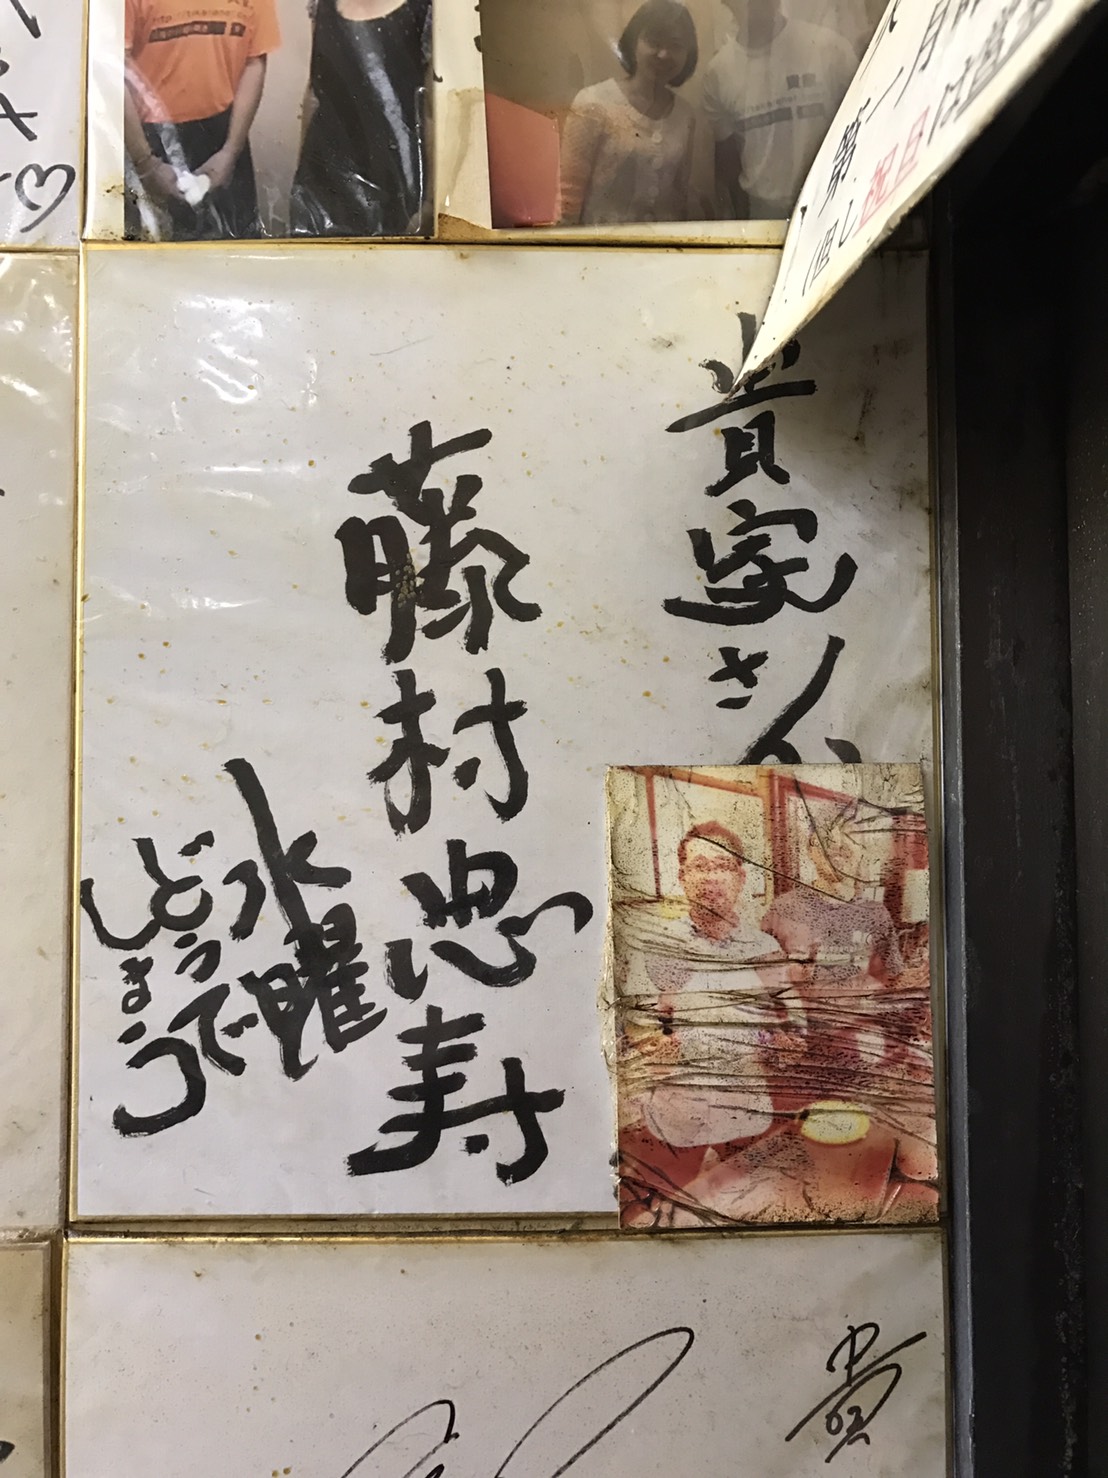 第一月
(但し祝日は営業
貴家さん
藤村忠寿
水曜
どうで
しょう
貴